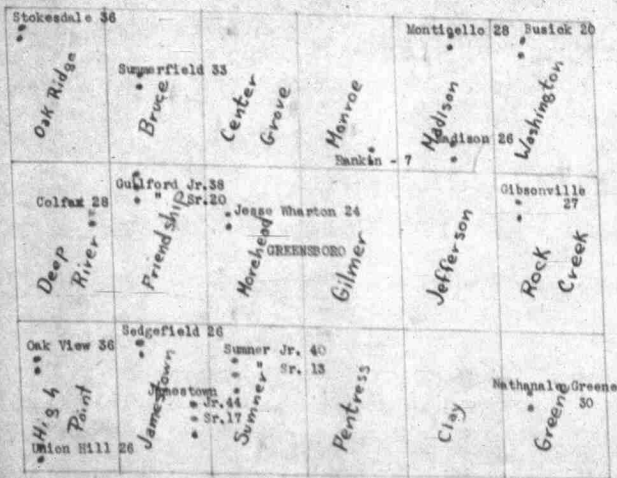 Stokesdale 36
Monticello 28
Busick 20
Oak Ridge
Summerfield 33
Bruce
Center
Grove
Monroe
Rankin - 7
Madison
Madison 26
Washington
Colfax 28
Deep
River
Guilford Jr.38
" Sr.20
Friendship
Jesse Wharton 24
Morehead
GREENSBORO
Gilmer
Jefferson
Gibsonville
27
Rock
Creek
Oak View 36
High
Point
Union Hill 26
Sedgefield 26
Jamestown
Jamestown
Jr.44
Sr.17
Sumner Jr. 40
" Sr. 13
Sumner
Pentress
Clay
Nathanale Greene
30
Greene